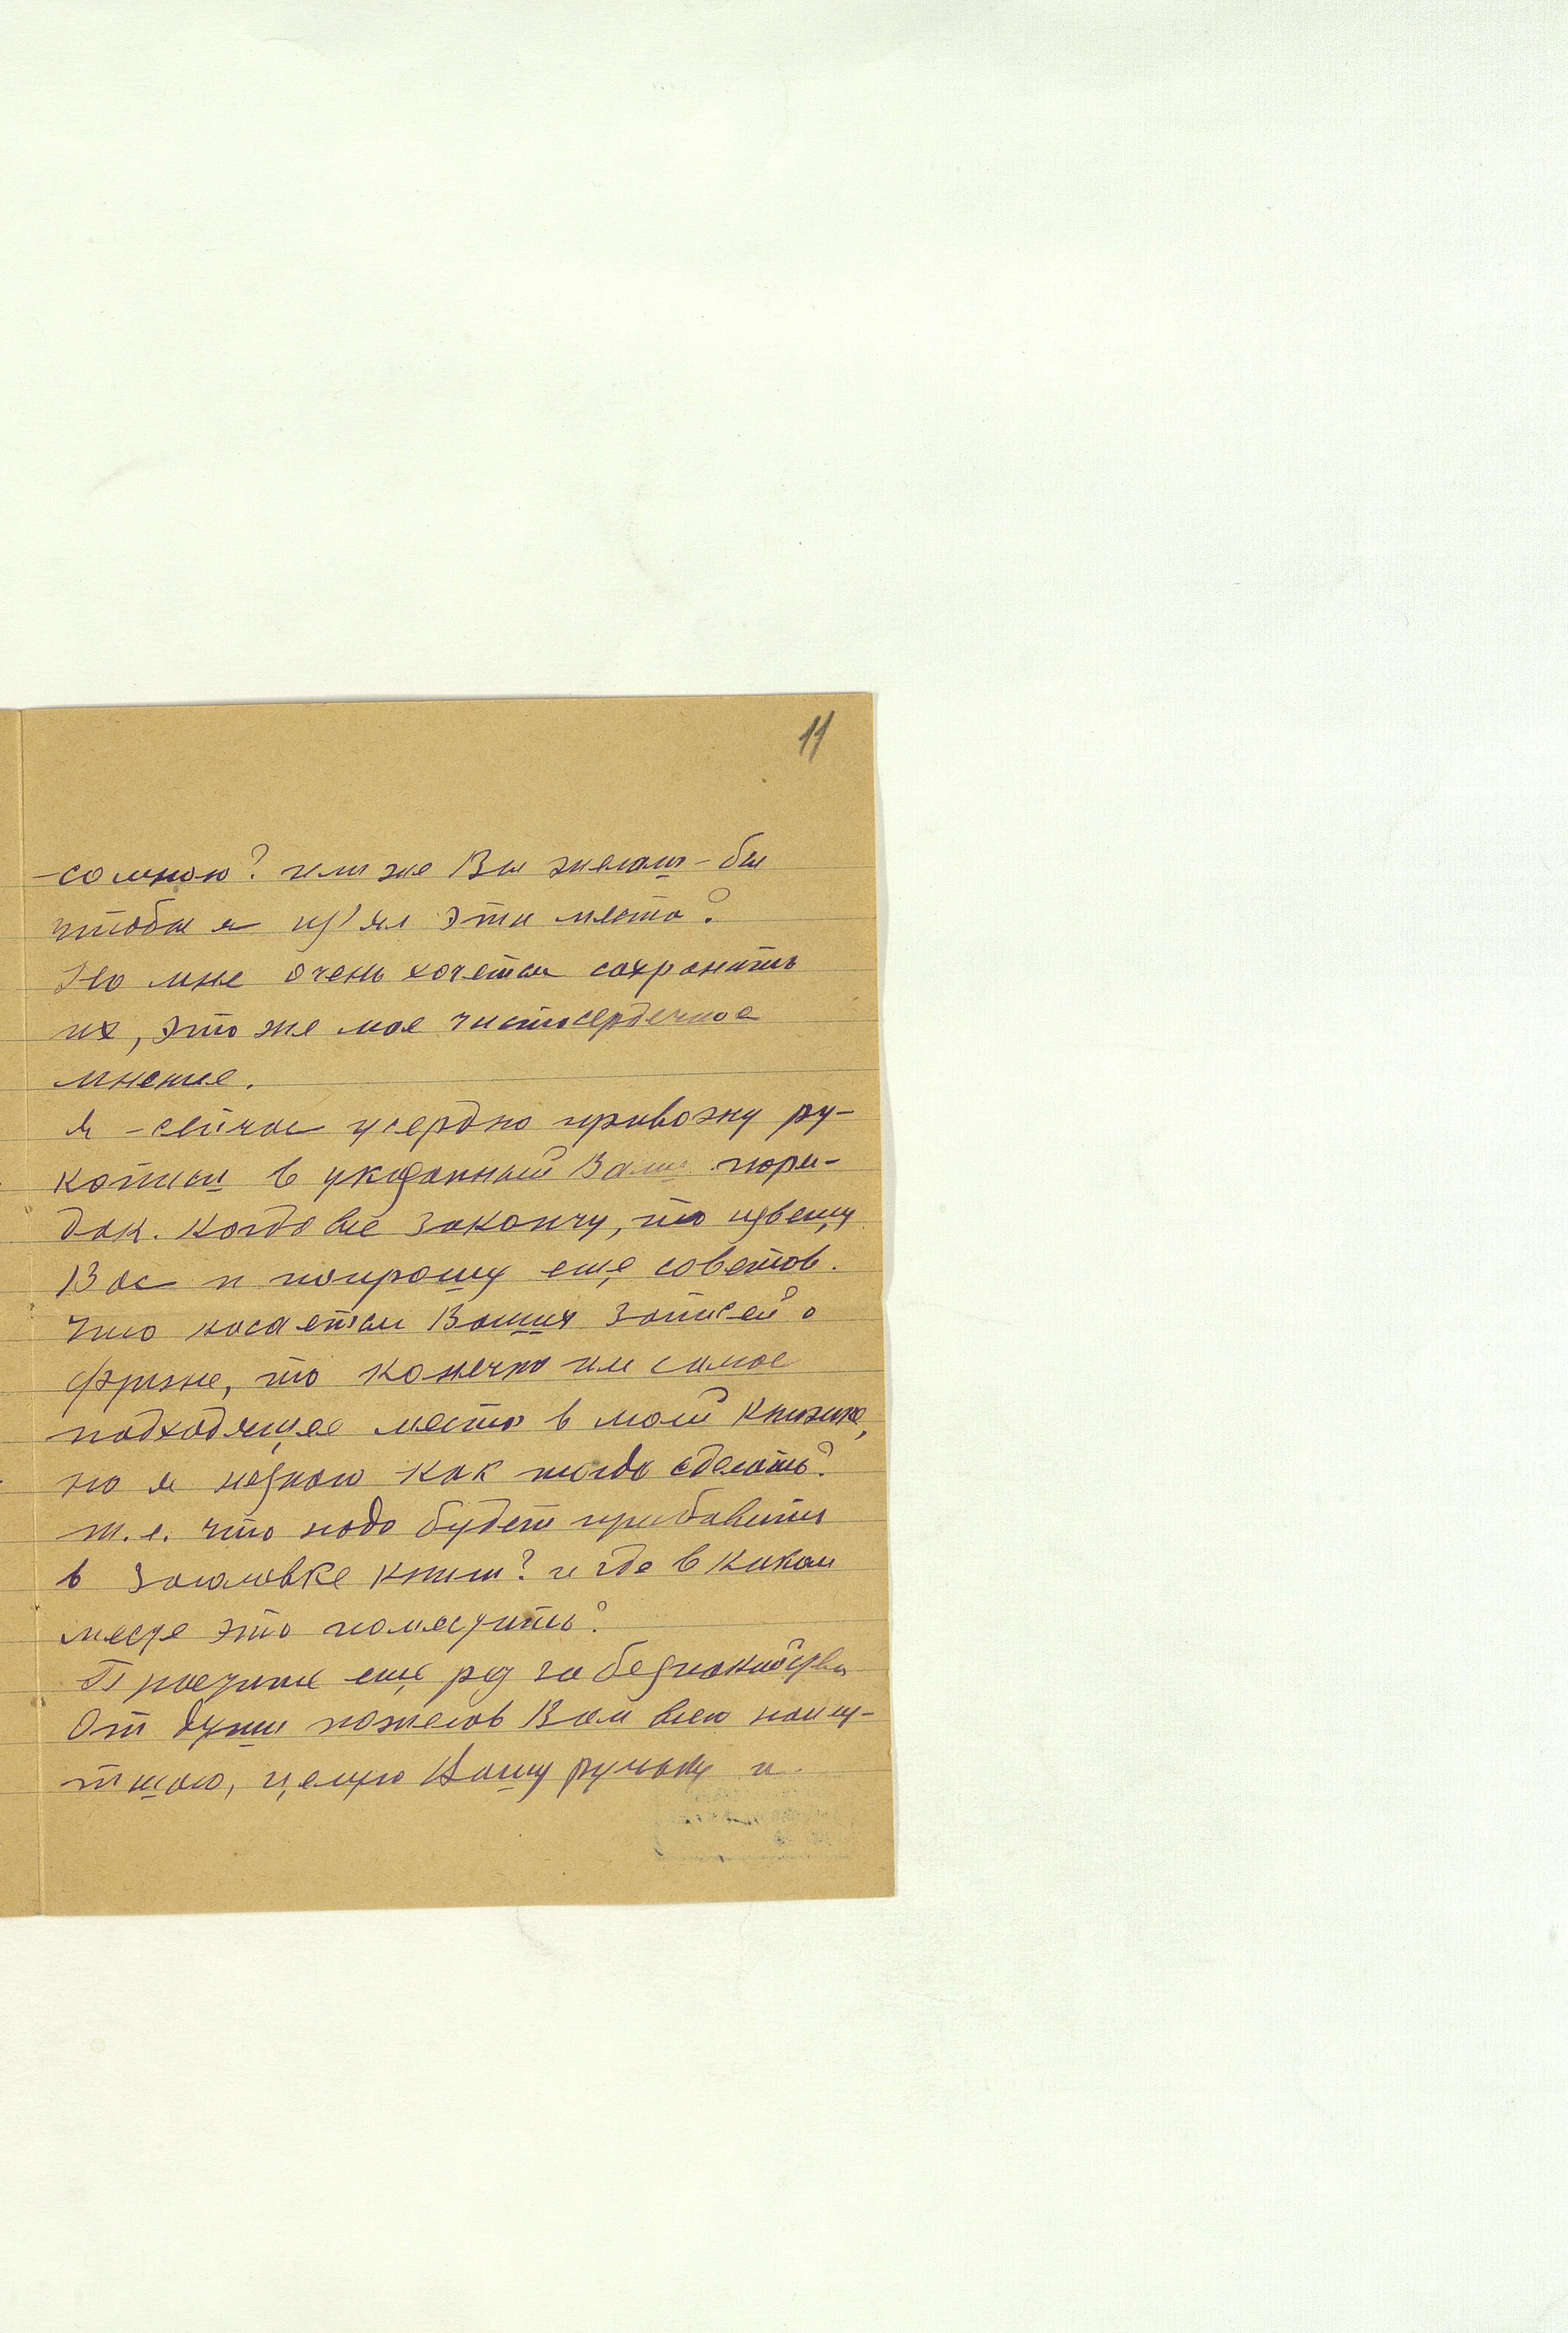 11
со мною? или же Вы желали-бы
чтобы я из'ял эти места?
Но мне очень хочется сохранить
их, это же мое чистосердечное
мнение.
Я сейчас усердно привожу ру-
кописи в указанный Вами поря-
док. Когда всё закончу, то извещу
Вас и попрошу еще советов.
Что касается Ваших записей о
Фриже, то конечно им самое
подходящее место в моей книжке,
но я незнаю как тогда сделать?
т.е. что надо будет прибавить
в заголовке книги? и где в каком
месте это поместить?
Простите еще раз за беспокойства
От души желаю Вам всего наилу-
тшаго, целую Вашу ручку и